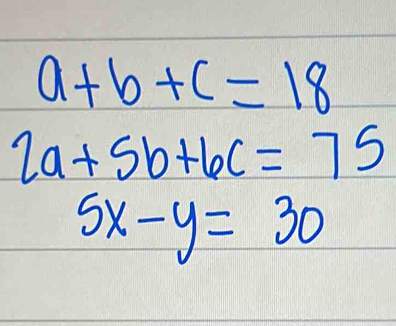 a+b+c=18
2a+5b+6c=75
5x-y=30